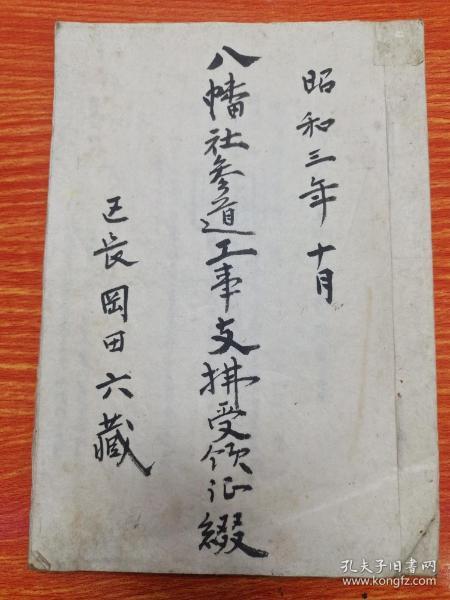 昭和三年十月
八幡社参道工事支拂受领证綴
区長岡田六藏
孔夫子旧书网
www.kongfz.com